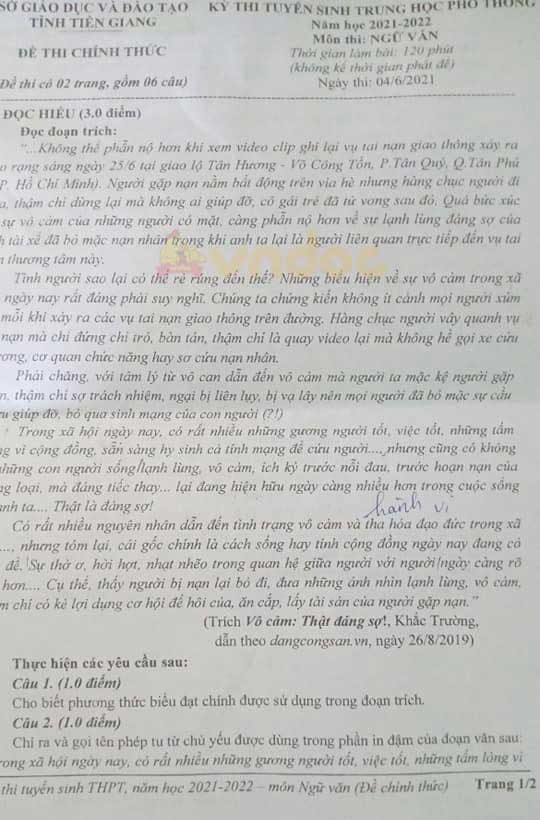 SỞ GIÁO DỤC VÀ ĐÀO TẠO KỲ THI TUYỂN SINH TRUNG HỌC PHỔ THÔNG
TỈNH TIỀN GIANG Năm học 2021-2022
Môn thi: NGỮ VĂN
ĐỀ THI CHÍNH THỨC Thời gian làm bài: 120 phút
(không kể thời gian phát đề)
(Đề thi có 02 trang, gồm 06 câu) Ngày thi: 04/6/2021
ĐỌC HIỂU (3.0 điểm)
Đọc đoạn trích:
"...Không thể phẫn nộ hơn khi xem video clip ghi lại vụ tai nạn giao thông xảy ra
rạng sáng ngày 25/6 tại giao lộ Tân Hương - Võ Công Tồn, P.Tân Quý, Q.Tân Phú
P. Hồ Chí Minh). Người gặp nạn nằm bất động trên vỉa hè nhưng hàng chục người đi
thậm chí dừng lại mà không ai giúp đỡ, cô gái trẻ đã tử vong sau đó. Quá bức xúc
sự vô cảm của những người có mặt, càng phẫn nộ hơn về sự lạnh lùng đáng sợ của
tài xế đã bỏ mặc nạn nhân trong khi anh ta lại là người liên quan trực tiếp đến vụ tai
thương tâm này.
vndoc
Tình người sao lại có thể rẻ rúng đến thế? Những biểu hiện về sự vô cảm trong xã
ngày nay rất đáng phải suy nghĩ. Chúng ta chứng kiến không ít cảnh mọi người xúm
mỗi khi xảy ra các vụ tai nạn giao thông trên đường. Hàng chục người vây quanh vụ
nạn mà chỉ đứng chỉ trỏ, bàn tán, thậm chí là quay video lại mà không hề gọi xe cứu
cơ quan chức năng hay sơ cứu nạn nhân.
Phải chăng, với tâm lý từ vô can dẫn đến vô cảm mà người ta mặc kệ người gặp
thậm chí sợ trách nhiệm, ngại bị liên lụy, bị vạ lây nên mọi người đã bỏ mặc sự cầu
giúp đỡ, bỏ qua sinh mạng của con người (?!)
Trong xã hội ngày nay, có rất nhiều những gương người tốt, việc tốt, những tấm
vì cộng đồng, sẵn sàng hy sinh cả tính mạng để cứu người..., nhưng cũng có không
những con người sống lạnh lùng, vô cảm, ích kỷ trước nỗi đau, trước hoạn nạn của
loại, mà đáng tiếc thay... lại đang hiện hữu ngày càng nhiều hơn trong cuộc sống
ta.... Thật là đáng sợ!
hành vi
Có rất nhiều nguyên nhân dẫn đến tình trạng vô cảm và tha hóa đạo đức trong xã
..., nhưng tóm lại, cái gốc chính là cách sống hay tính cộng đồng ngày nay đang có
đề. Sự thờ ơ, hời hợt, nhạt nhẽo trong quan hệ giữa người với người ngày càng rõ
hơn.... Cụ thể, thấy người bị nạn lại bỏ đi, đưa những ánh nhìn lạnh lùng, vô cảm,
chí có kẻ lợi dụng cơ hội để hôi của, ăn cắp, lấy tài sản của người gặp nạn."
(Trích Vô cảm: Thật đáng sợ!, Khắc Trường,
dẫn theo dangcongsan.vn, ngày 26/8/2019)
Thực hiện các yêu cầu sau:
Câu 1. (1.0 điểm)
Cho biết phương thức biểu đạt chính được sử dụng trong đoạn trích.
Câu 2. (1.0 điểm)
Chỉ ra và gọi tên phép tu từ chủ yếu được dùng trong phần in đậm của đoạn văn sau:
trong xã hội ngày nay, có rất nhiều những gương người tốt, việc tốt, những tấm lòng vì
thi tuyển sinh THPT, năm học 2021-2022 – môn Ngữ văn (Đề chính thức) Trang 1/2